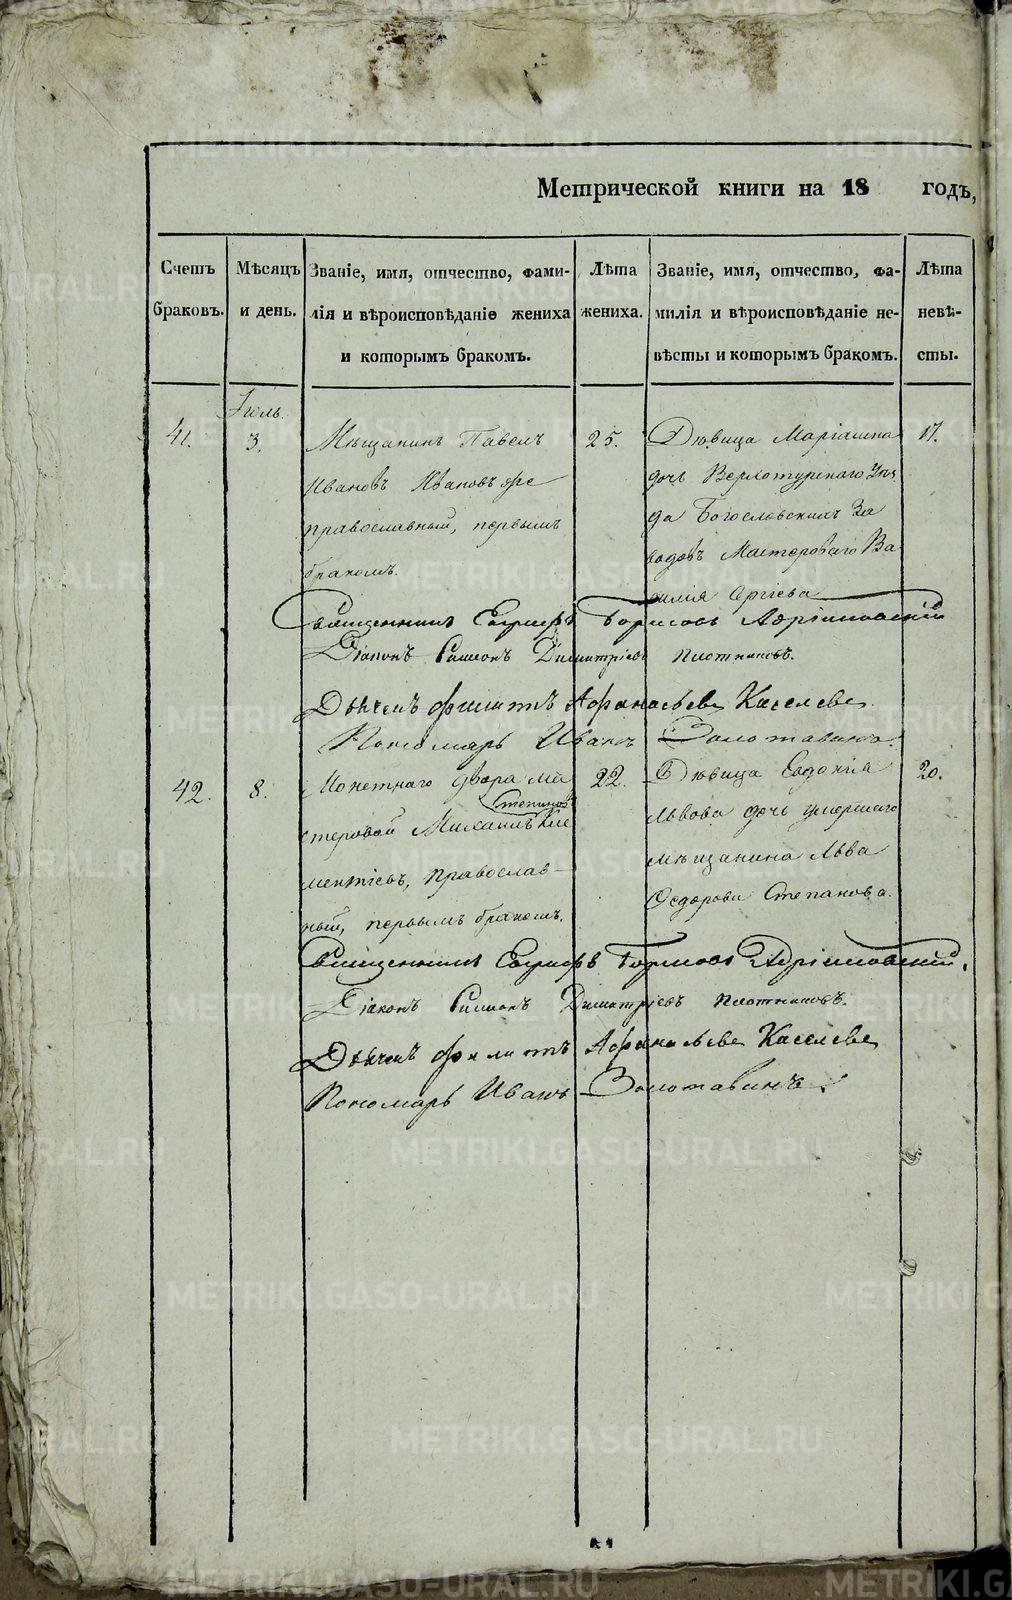 Метрической книги на 18 годъ,
Счетъ браковъ.
Мѣсяцъ и день.
Званіе, имя, отчество, фами-
лія и вѣроисповѣданіе жениха
и которымъ бракомъ.
Лѣта жениха.
Званіе, имя, отчество, фа-
милія и вѣроисповѣданіе не-
вѣсты и которымъ бракомъ.
Лѣта невѣ-
сты.
Іюль.
41. 3.
Мѣщанинъ Павелъ
Ивановъ Ивановъ же
православный, первымъ
бракомъ.
25.
Дѣвица Маріамна
дочь Верхотурскаго Уѣз
да Богословскихъ За
водовъ Мастероваго Ва
силія Сергіева
17.
Священникъ Евграфъ Борисовъ Адріановскій
Діаконъ Симеонъ Димитріевъ Плотниковъ.
Дьячекъ Филитъ Афанасьевъ Киселевъ
Пономарь Иванъ Золотавинъ.
42. 8.
Монетнаго двора ма
стеровой Михаилъ Степановъ Кле
ментіевъ, православ-
ный, первымъ бракомъ.
22.
Дѣвица Евдокія
Львова дочь умершаго
мѣщанина Льва
Федорова Степанова.
20.
Священникъ Евграфъ Борисовъ Адріановскій.
Діаконъ Симеонъ Димитріевъ Плотниковъ.
Дьячекъ Филитъ Афанасьевъ Киселевъ
Пономарь Иванъ Золотавинъ
METRIKI.GASO-URAL.RU